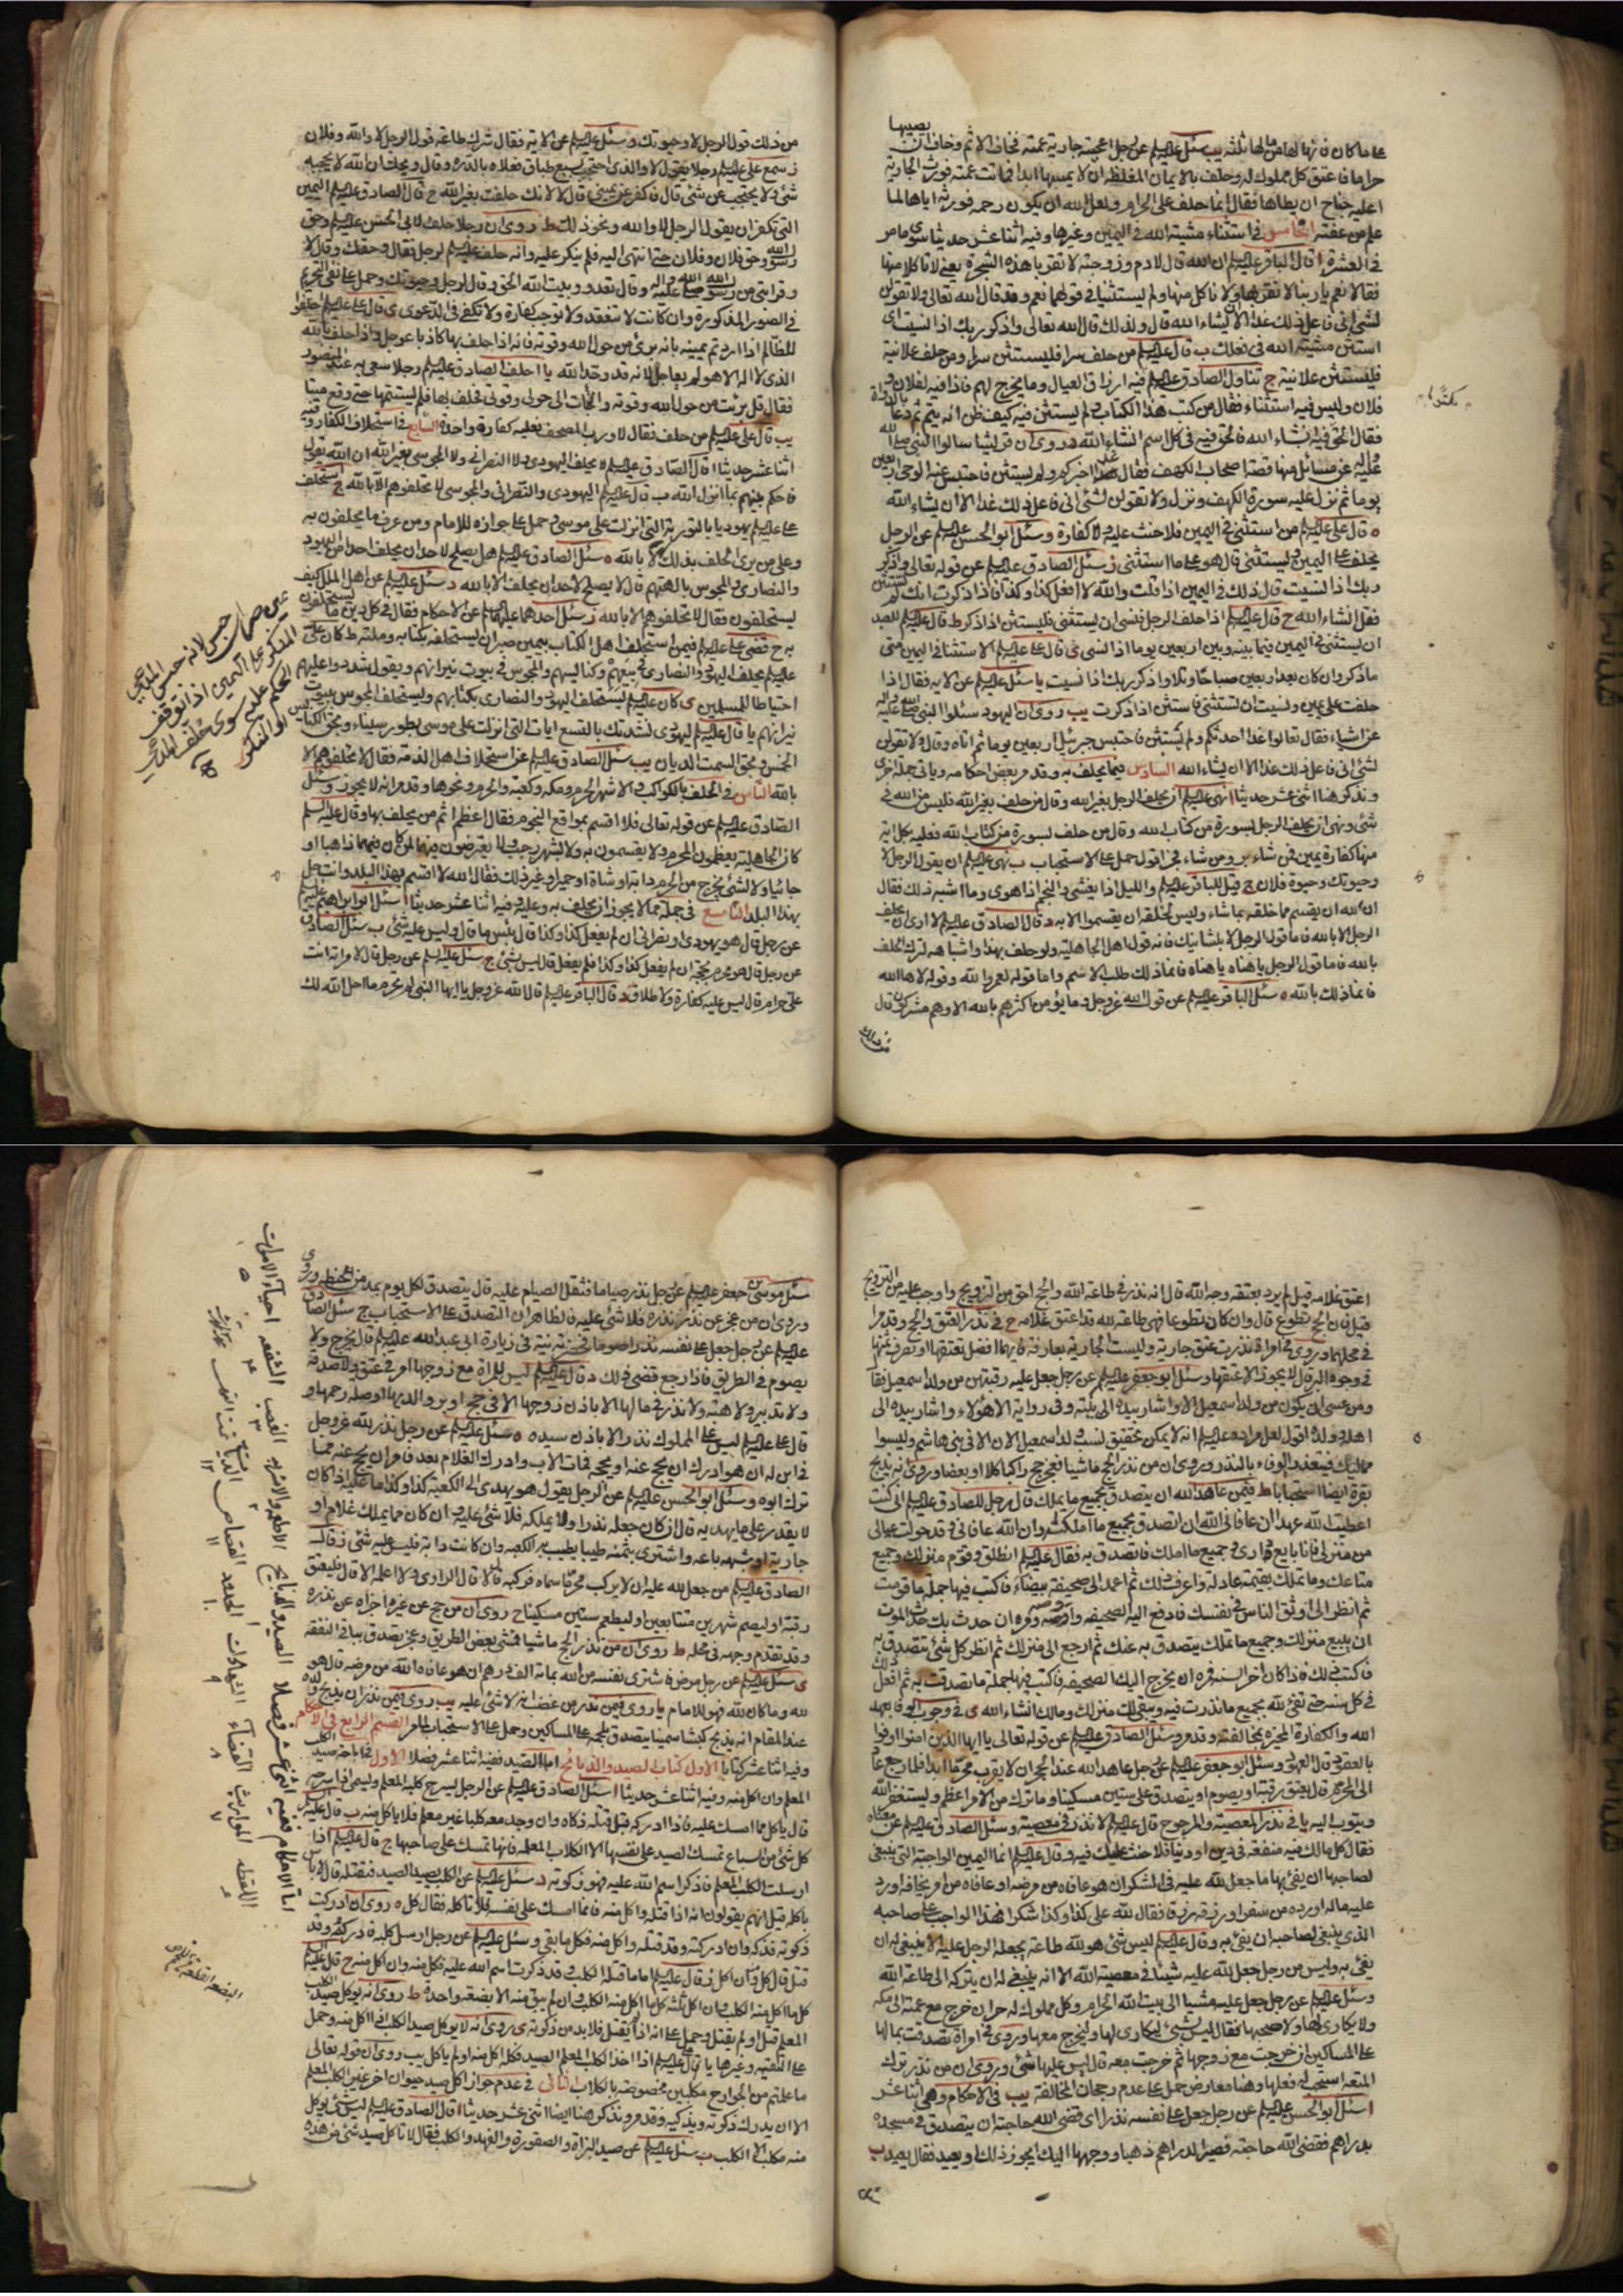 يصيبها
على ما كان فانها لها من مالها ثلثه يب سئل عليلم عن رجل اعجبته جارية عمته فخاف الاثم وخاف ان
حراما فاعتق كل مملوك له وحلف بالايمان المغلظة ان لا يمسها ابدا فماتت عمته فورث الجارية
اعليه جناح ان يطاها فقال انما حلف على الحرام ولعل الله ان يكون رحمه فورثه اياها لما
علم من عفته الخامس في استثناء مشيته الله في اليمين وغيرها وفيه اثنا عشر حديثا سوى ما مر
في العشرة ا قال الباقر عليلم ان الله قال لادم وزوجته لا تقربا هذه الشجرة يعني لا تاكلا منها
فقالا نعم يا ربنا لا نقربها ولا ناكل منها ولم يستثنيا في قولهما نعم وقد قال الله تعالى ولا تقولن
لشئ اني فاعل ذلك غدا الا ان يشاء الله قال ولذلك قال الله تعالى واذكر ربك اذا نسيت اى
استثن مشيته الله في فعلك ب قال عليلم من حلف سرا فليستثن سرا ومن حلف علانية
فليستثن علانية ج تناول الصادق عليلم فيه ارزاق العيال وما يخرج لهم فاذا فيه لفلان و
فلان وليس فيه استثناء فقال من كتب هذا الكتاب ولم يستثن فيه كيف ظن انه يتم ثم دعا بالدواة
فقال الحق فيه انشاء الله فالحق فيه في كل اسم انشاء الله د روى ان قريشا سالوا النبي صلى الله
عليه واله عن مسائل منها قصة اصحاب الكهف فقال غدا اخبركم ولم يستثن فاحتبس عنه الوحي اربعين
يوما ثم نزل عليه سورة الكهف ونزل ولا تقولن لشئ اني فاعل ذلك غدا الا ان يشاء الله
ه قال علي عليلم من استثنى في اليمين فلا حنث عليه ولا كفارة و سئل ابو الحسن عليلم عن الرجل
يحلف على اليمين ويستثني قال هو على ما استثنى ز سئل الصادق عليلم عن قوله تعالى واذكر
ربك اذا نسيت قال ذلك في اليمين اذا قلت والله لا افعل كذا وكذا فاذا ذكرت انك لم تستثن
فقل انشاء الله ح قال عليلم اذا حلف الرجل فنسى ان يستثني فليستثن اذا ذكر ط قال عليلم للعبد
ان يستثني في اليمين فيما بينه وبين اربعين يوما اذا نسي ى قال علي عليلم الاستثنا في اليمين متى
ما ذكر وان كان بعد اربعين صباحا وتلا واذكر ربك اذا نسيت يا سئل عليلم عن الاية فقال اذا
حلفت على يمين ونسيت ان تستثني فاستثن اذا ذكرت يب روى ان اليهود سئلوا النبي صلى الله عليه واله
عن اشياء فقال تعالوا غدا احدثكم ولم يستثن فاحتبس جبرئيل اربعين يوما ثم اتاه وقال ولا تقولن
لشئ اني فاعل ذلك غدا الا ان يشاء الله السادس فيما يحلف به وقد مر بعض احكامه وياتي جملة اخرى
ونذكر هنا اثنى عشر حديثا ا نهى عليلم ان يحلف الرجل بغير الله وقال من حلف بغير الله فليس من الله في
شئ ونهى ان يحلف الرجل بسورة من كتاب الله وقال من حلف بسورة من كتاب الله فعليه بكل اية
منها كفارة يمين فمن شاء بر ومن شاء فجر اقول حمل على الاستحباب ب نهى عليلم ان يقول الرجل لا
وحيوتك وحيوة فلان ج قيل للباقر عليلم والليل اذا يغشى والنجم اذا هوى وما اشبه ذلك فقال
ان لله ان يقسم من خلقه بما شاء وليس لخلقه ان يقسموا الا به د قال الصادق عليلم لا ارى ان يحلف
الرجل الا بالله فاما قول الرجل لا بل شانيك فانه قول اهل الجاهلية ولو حلف بهذا واشباهه لترك الحلف
بالله فاما قول الرجل يا هناه يا هناه فانما ذلك طلب الاسم واما قوله لعمرو الله وقوله لا هاالله
فانما ذلك بالله ه سئل الباقر عليلم عن قول الله عز وجل وما يؤمن اكثرهم بالله الا وهم مشركون قال
من ذلك
من ذلك قول الرجل لا وحيوتك و سئل عليلم عن الاية فقال شرك طاعة قول الرجل لا والله وفلان
ز سمع علي عليلم رجلا يقول لا والذي احتجب بسبع طباق فعلاه بالدرة وقال ويحك ان الله لا يحجبه
شئ ولا يحتجب عن شئ قال فاكفر عن يميني قال لا لانك حلفت بغير الله ح قال الصادق عليلم اليمين
التي تكفر ان يقول الرجل لا والله ونحو ذلك ط روى ان رجلا حلف لابي الحسن عليلم وحق
رسول الله وحق فلان وفلان حتى انتهى اليه فلم ينكر عليه وانه حلف عليلم لرجل فقال وحقك وقال لا
وقرابتي من رسول الله صلى الله عليه واله
في الصور المذكورة وان كانت لا تنعقد ولا توجب كفارة ولا تكفي في الدعوى ى قال علي عليلم احلفوا
الظالم اذا اردتم يمينه بانه برئ من حول الله وقوته فانه اذا حلف بها كاذبا عوجل واذا حلف بالله
الذي لا اله الا هو لم يعاجل لانه قد وحد الله يا احلف الصادق عليلم رجلا سعى به عند المنصور
فقال قل برئت من حول الله وقوته والجات الى حولي وقوتي فحلف بها فلم يستتمها حتى وقع ميتا
يب قال علي عليلم من حلف فقال لا ورب المصحف فعليه كفارة واحدة السابع في استحلاف الكفار وفيه
اثنا عشر حديثا ا قال الصادق عليلم لا يحلف اليهودي ولا النصراني ولا المجوسي بغير الله ان الله يقول
فاحكم بينهم بما انزل الله ب قال عليلم اليهودي والنصراني والمجوسي لا تحلفوهم الا بالله ج استحلف
علي عليلم يهوديا بالتورية التي انزلت على موسى وحمل على جوازه للامام ومن عرف ما يحلفون به
وعلى من يرى الحلف بذلك كا بالله ه سئل الصادق عليلم هل يصلح لاحد ان يحلف احدا من اليهود
والنصارى والمجوس بالهتهم قال لا يصلح لاحد ان يحلف الا بالله و سئل عليلم عن اهل الملل كيف
يستحلفون فقال لا تحلفوهم الا بالله ز سئل احدهما عليهما عن الاحكام فقال في كل دين ما يستحلفون
به ح قضى علي عليلم فيمن استحلف اهل الكتاب بيمين صبر ان يستحلفه بكتابه وملته ط كان علي
عليلم يحلف اليهود والنصارى في بيعهم وكنايسهم والمجوس في بيوت نيرانهم ويقول شددوا عليهم
احتياطا للمسلمين ى كان عليلم يستحلف اليهود والنصارى بكتابهم ويستحلف المجوس ببيوت
نيرانهم يا قال عليلم ليهودي نشدتك بالتسع ايات التي انزلت على موسى بطور سيناء وبحق الكنايس
الخمس وبحق السمت الديان يب سئل الصادق عليلم عن استحلاف اهل الذمة فقال لا تحلفوهم الا
بالله الثامن في الحلف بالكواكب والاشهر الحرم ومكة وكعبة والحرم ونحوها وقد مر انه لا يجوز وسئل
الصادق عليلم عن قوله تعالى فلا اقسم بمواقع النجوم فقال اعظم اثم من يحلف بها وقال عليه السلم
كان الجاهلية يعظمون المحرم ولا يقسمون به ولا بشهر رجب ولا يعرضون فيهما لمن كان فيهما ذاهبا او
جائيا ولا لشئ يخرج من الحرم دابة او شاة او حميرا وغير ذلك فقال الله لا اقسم بهذا البلد وانت حل
بهذا البلد التاسع في جملة مما لا يجوز ان يحلف به وعليه وفيه اثنا عشر حديثا ا سئل ابو ابراهيم عليلم
عن رجل قال هو يهودي او نصراني ان لم يفعل كذا وكذا قال بئس ما قال وليس عليه شئ ب سئل الصادق
عن رجل قال هو محرم بحجة ان لم يفعل كذا وكذا فلم يفعل قال ليس بشئ ج سئل عليلم عن رجل قال لامراته انت
علي حرام قال ليس عليه كفارة ولا طلاق د قال الباقر عليلم قال الله عز وجل يا ايها النبي لم تحرم ما احل الله لك
اعتق غلامه قبل لم يرد بعتقه وجه الله قال انه نذر في طاعة الله والحج احق من التزويج واوجب عليه من التزويج
قيل فان الحج تطوع قال وان كان تطوعا فهى طاعة لله قد اعتق غلامه ح في نذر العتق والحج وقد مرا
في محلهما وروى في امراة نذرت عتق جارية وليست الجارية بعارفة فايهما افضل تعتقها او تصرف ثمنها
في وجوه البر قال لا يجوز الا عتقها وسئل ابو جعفر عليلم عن رجل جعل عليه رقبتين من ولد اسمعيل فقا
ومن عسى ان يكون من ولد اسمعيل الا واشار بيده الى بيته وفي رواية الا هؤلاء واشار بيده الى
اهله وولده اقول لعل مراده عليلم انه لا يمكن تحقيق نسب ولد اسمعيل الان الا في بني هاشم وليسوا
مماليك فيتعذر الوفاء بالنذر وروى ان من نذر الحج ماشيا فعجز حج راكبا كلا او بعضا وروى انه يذبح
بقرة ايضا استحبابا ط فيمن عاهد الله ان يتصدق بجميع ما يملك قال رجل للصادق عليلم اني كنت
اعطيت الله عهدا ان عافاني الله ان اتصدق بجميع ما املك وان الله عافاني وقد حولت عيالي
من منزلي فانا بايع داري وجميع ما املك فاتصدق به فقال عليلم انطلق وقوم منزلك وجميع
متاعك وما تملك بقيمة عادلة واعرف ذلك ثم اعمد الى صحيفة بيضاء فاكتب فيها جملة ما قومت
ثم انظر الى اوثق الناس في نفسك فادفع اليه الصحيفة واوصه ومره ان حدث بك حدث الموت
ان يبيع منزلك وجميع ما تملك فيتصدق به عنك ثم ارجع الى منزلك ثم انظر كل شئ تتصدق به
فاكتب ذلك فاذا كان اخر السنة فمره ان يخرج اليك الصحيفة فاكتب فيها جملة ما تصدقت به ثم افعل ذلك
في كل سنة حتى تفي لله بجميع ما نذرت فيه ويبقى لك منزلك ومالك انشاء الله ى في وجوب الوفا بعهد
الله والكفارة المخيرة بمخالفته وقد مر وسئل الصادق عليلم عن قوله تعالى يا ايها الذين امنوا اوفوا
بالعقود قال العهود وسئل ابو جعفر عليلم عن رجل عاهد الله عند الحجر ان لا يقرب محرما ابدا فلما رجع عاد
الى المحرم قال يعتق رقبة او يصوم او يتصدق على ستين مسكينا وما ترك من الامر اعظم ويستغفر الله
ويتوب اليه يا في نذر المعصية والمرجوح قال عليلم لا نذر في معصية وسئل الصادق عليلم عن معناه
فقال كل ما لك فيه منفعة في دين او دنيا فلا حنث عليك فيه وقال عليلم انما اليمين الواجبة التي ينبغي
لصاحبها ان يفي بها ما جعل لله عليه في الشكر ان هو عافاه من مرضه او عافاه من امر يخافه او رد
عليه ماله او رده من سفر او رزقه رزقا فقال لله علي كذا وكذا شكرا فهذا الواجب على صاحبه
الذي ينبغي لصاحبه ان يفي به وقال عليلم ليس شئ هو لله طاعة يجعله الرجل عليه الا ينبغي له ان
يفي به وليس من رجل جعل لله عليه شيئا في معصية الله الا انه ينبغي له ان يتركه الى طاعة الله
وسئل عليلم عن رجل جعل عليه مشيا الى بيت الله الحرام وكل مملوك له حر ان خرج مع عمته الى مكة
ولا يكاري لها ولا صحبها فقال ليس بشئ ليكاري لها وليخرج معها وروى في امراة تصدقت بمالها
على المساكين ان خرجت مع زوجها ثم خرجت معه قال ليس عليها شئ وروى ان من نذر ترك
المتعة استحب له فعلها وهنا معارض حمل على عدم رجحان المخالفة يب في الاحكام وهي اثنا عشر
ا سئل ابو الحسن عليلم عن رجل جعل على نفسه نذرا اى قضى الله حاجته ان يتصدق في مسجده
بدراهم فقضى الله حاجته فصير الدراهم ذهبا ووجهها اليك ايجوز ذلك او يعيد فقال يعيد ب
سئل موسى بن جعفر عليلم عن رجل نذر صياما فثقل الصيام عليه قال يتصدق لكل يوم بمد من الحنطة وروى
وروى ان من عجز عن نذر نذره فلا شئ عليه فالظاهر ان التصدق على الاستحباب ج سئل الصادق
عليلم عن رجل جعل على نفسه نذرا صوما فحضرته نية في زيارة ابي عبد الله عليلم قال يخرج ولا
يصوم في الطريق فاذا رجع قضى ذلك د قال عليلم ليس للمراة مع زوجها امر في عتق ولا صدقة
ولا تدبير ولا هبة ولا نذر في مالها الا باذن زوجها الا في حج او بر والديها او صلة رحمها و
قال علي عليلم ليس على المملوك نذر الا باذن سيده ه سئل عليلم عن رجل نذر لله عز وجل
في ابن له ان هو ادرك ان يحج عنه او يحجه فمات الاب وادرك الغلام بعد فامر ان يحج عنه مما
ترك ابوه و سئل ابو الحسن عليلم عن الرجل يقول هو يهدي الى الكعبة كذا وكذا ما عليه اذا كان
لا يقدر على ما يهديه قال ان كان جعله نذرا ولا يملكه فلا شئ عليه وان كان مما يملك غلام او
جارية او شبهه باعه واشترى بثمنه طيبا يطيب به الكعبة وان كانت دابة فليس عليه شئ ز قال
الصادق عليلم من جعل لله عليه ان لا يركب محرما سماه فركبه
رقبة او ليصم شهرين متتابعين او ليطعم ستين مسكينا ح روى ان من حج عن غيره اجزاه عن نذره
وقد تقدم وجهه في محله ط روى ان من نذر الحج ماشيا فمشى بعض الطريق وعجز تصدق بباقي النفقة
ى سئل عليلم عن رجل مرض فاشترى نفسه من الله بمائة الف درهم ان هو عافاه الله من مرضه قال هو
لله وما كان لله فهو للامام يا روى فيمن نذر من غضب انه لا شئ عليه يب روى فيمن نذر ان يذبح ولده
عند المقام انه يذبح كبشا سمينا يتصدق بلحمه على المساكين وحمل على الاستحباب لما مر القسم الرابع في الاحكام
وفيه اثنا عشر كتابا الاول كتاب الصيد والذبائح اما الصيد ففيه اثنا عشر فصلا الاول في اباحة صيد الكلب
المعلم وان اكل منه وفيه اثنا عشر حديثا ا سئل الصادق عليلم عن الرجل يسرح كلبه المعلم ويسمي اذا سرحه
قال ياكل مما امسك عليه فاذا ادركه قبل قتله ذكاه وان وجد معه كلبا غير معلم فلا ياكل منه ب قال عليه
كل شئ من السباع تمسك الصيد على نفسها الا الكلاب المعلمة فانها تمسك على صاحبها ج قال عليلم اذا
ارسلت الكلب المعلم فاذكر اسم الله عليه فهو ذكوته د سئل عليلم عن الكلب يصيد الصيد فيقتله قال لا باس
باكله قيل انهم يقولون انه اذا قتله واكل منه فانما امسك على نفسه فلا تاكله فقال كل ه روى ان ادركت
ذكوته فذكه وان ادركته وقد قتله واكل منه فكل ما بقي و سئل عليلم عن رجل ارسل كلبه فادركه وقد
قتل قال كل وان اكل ز قال عليلم اما ما قتله الكلب وقد ذكرت اسم الله عليه فكل منه وان اكل منه ح قال عليلم
كل ما اكل منه الكلب وان اكل ثلثه كل ما اكل منه الكلب وان لم يبق منه الا بضعة واحدة ط روى انه يوكل صيد الكلب
المعلم قبل او لم يقتل وحمل على انه اذا لم يقتل فلا بد من ذكوته ى روى انه لا يوكل صيد الكلب اذا اكل منه وحمل
على التقية وغيرها يا قال عليلم اذا اخذ الكلب المعلم الصيد فكله اكل منه او لم ياكل يب روى ان قوله تعالى
ما علمتم من الجوارح مكلبين مخصوصة بالكلاب الثاني في عدم جواز اكل صيد حيوان اخر غير الكلب المعلم
الا ان يدرك ذكوته ويذكيه وقد مر ونذكر هنا ايضا اثنى عشر حديثا ا قال الصادق عليلم ليس شئ يوكل
منه مكلب الا الكلب ب سئل عليلم عن صيد البزاة والصقورة والفهد والكلب فقال لا تاكل صيد شئ من هذه